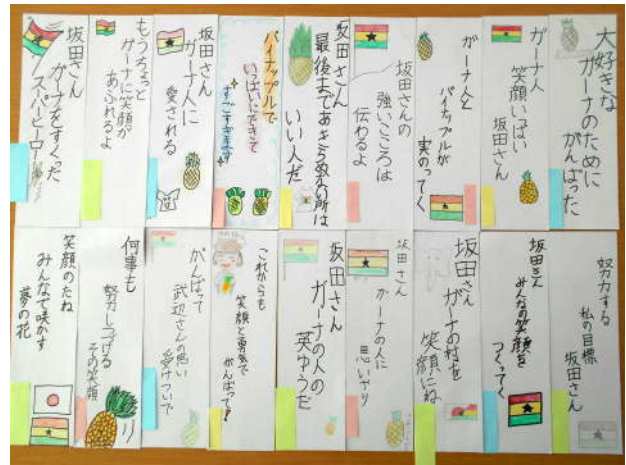 大好きな
ガーナのために
がんばった
ガーナ人
笑顔いっぱい
坂田さん
ガーナ人と
パイナップルが
実のってく
坂田さんの
強いこころは
伝わるよ
坂田さん
最後まであきらめない所は
いい人だ
パイナップルで
いっぱいにできて
すごすぎます
坂田さん
ガーナ人に
愛される
もうちょっと
ガーナに笑顔が
あふれるよ
坂田さん
ガーナをすくった
スーパーヒーロー
努力する
私の目標
坂田さん
坂田さん
みんなの笑顔を
つくってく
坂田さん
ガーナの村を
笑顔にね
坂田さん
ガーナの人に
思いやり
坂田さん
ガーナの人の
英ゆうだ
これからも
笑顔と勇気で
がんばって!
がんばって
武辺さんの思い
受けついで
何事も
努力しつづける
その笑顔
笑顔のたね
みんなで咲かす
夢の花